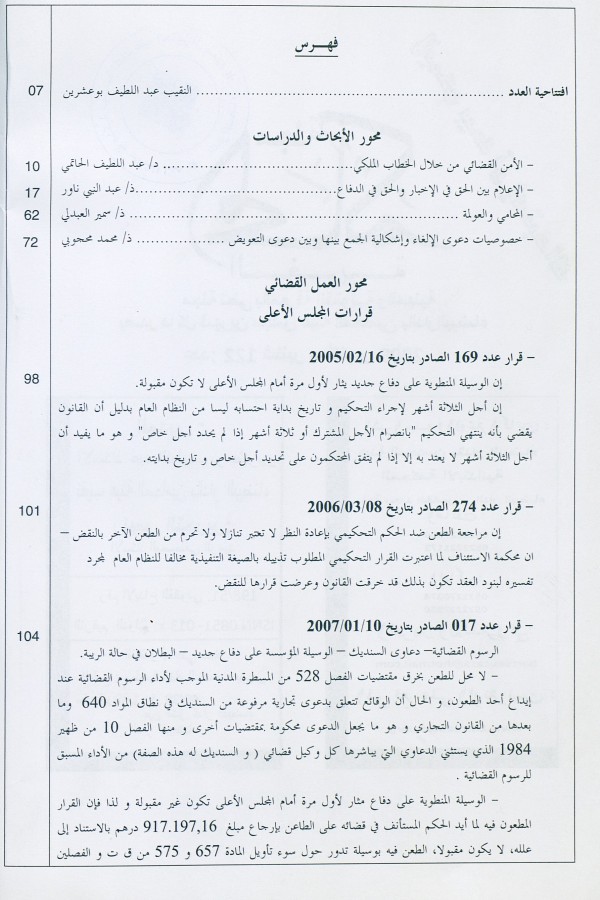 فهـــرس
افتتاحية العدد ........................................................ النقيب عبد اللطيف بوعشرين 07
محور الأبحاث والدراسات
– الأمن القضائي من خلال الخطاب الملكي........................... د/ عبد اللطيف الحاتمي 10
– الإعلام بين الحق في الإخبار والحق في الدفاع........................ذ/ عبد النبي ناور 17
– المحامي والعولمة ........................................................ ذ/ سمير العبدلي 62
– خصوصيات دعوى الإلغاء وإشكالية الجمع بينها وبين دعوى التعويض ................ ذ/ محمد محجوبي 72
محور العمل القضائي
قرارات المجلس الأعلى
– قرار عدد 169 الصادر بتاريخ 2005/02/16 98
إن الوسيلة المنطوية على دفاع جديد يثار لأول مرة أمام المجلس الأعلى لا تكون مقبولة.
إن أجل الثلاثة أشهر لإجراء التحكيم و تاريخ بداية احتسابه ليسا من النظام العام بدليل أن القانون
يقضي بأنه ينتهي التحكيم "بانصرام الأجل المشترك أو ثلاثة أشهر إذا لم يحدد أجل خاص" و هو ما يفيد أن
أجل الثلاثة أشهر لا يعتد به إلا إذا لم يتفق المحتكمون على تحديد أجل خاص و تاريخ بدايته.
– قرار عدد 274 الصادر بتاريخ 2006/03/08 101
إن مراجعة الطعن ضد الحكم التحكيمي بإعادة النظر لا تعتبر تنازلا ولا تحرم من الطعن الآخر بالنقض –
ان محكمة الاستئناف لما اعتبرت القرار التحكيمي المطلوب تذييله بالصيغة التنفيذية مخالفا للنظام العام لمجرد
تفسيره لبنود العقد تكون بذلك قد خرقت القانون وعرضت قرارها للنقض.
– قرار عدد 017 الصادر بتاريخ 2007/01/10 104
الرسوم القضائية– دعاوى السنديك – الوسيلة المؤسسة على دفاع جديد – البطلان في حالة الريبة.
– لا محل للطعن بخرق مقتضيات الفصل 528 من المسطرة المدنية الموجب لأداء الرسوم القضائية عند
إيداع أحد الطعون، و الحال أن الوقائع تتعلق بدعوى تجارية مرفوعة من السنديك في نطاق المواد 640 وما
بعدها من القانون التجاري و هو ما يجعل الدعوى محكومة بمقتضيات أخرى و منها الفصل 10 من ظهير
1984 الذي يستثني الدعاوي التي يباشرها كل وكيل قضائي ( و السنديك له هذه الصفة) من الأداء المسبق
للرسوم القضائية .
– الوسيلة المنطوية على دفاع مثار لأول مرة أمام المجلس الأعلى تكون غير مقبولة و لذا فإن القرار
المطعون فيه لما أيد الحكم المستأنف في قضائه على الطاعن بإرجاع مبلغ 917.197,16 درهم بالاستناد إلى
علله، لا يكون مقبولا، الطعن فيه بوسيلة تدور حول سوء تأويل المادة 657 و 575 من ق ت و الفصلين